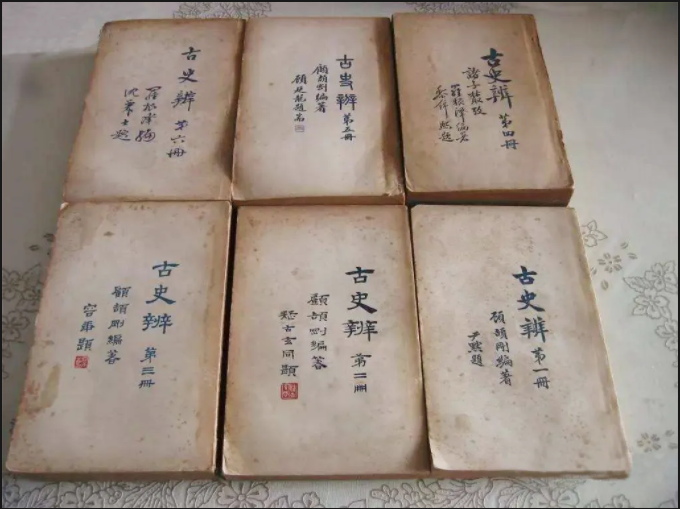 古史辨 第六冊
羅根澤編
沈兼士題
古史辨 第五冊
顧頡剛編著
顧廷龍題耑
古史辨 第四冊
諸子叢攷
羅根澤編著
題
古史辨 第三冊
顧頡剛編著
容庚題
古史辨 第二冊
顧頡剛編著
疑古玄同題
古史辨 第一冊
顧頡剛編著
尹默題